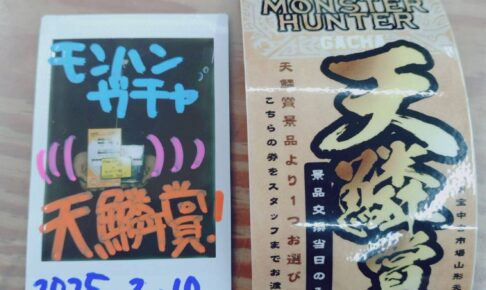 モンハン
ガチャ
天鱗賞!
MONSTER
HUNTER
GACHA
天鱗賞
天鱗賞景品より1つお選び
こちらの券をスタッフまでお渡
景品交換当日のみ
宝中一市場山形天